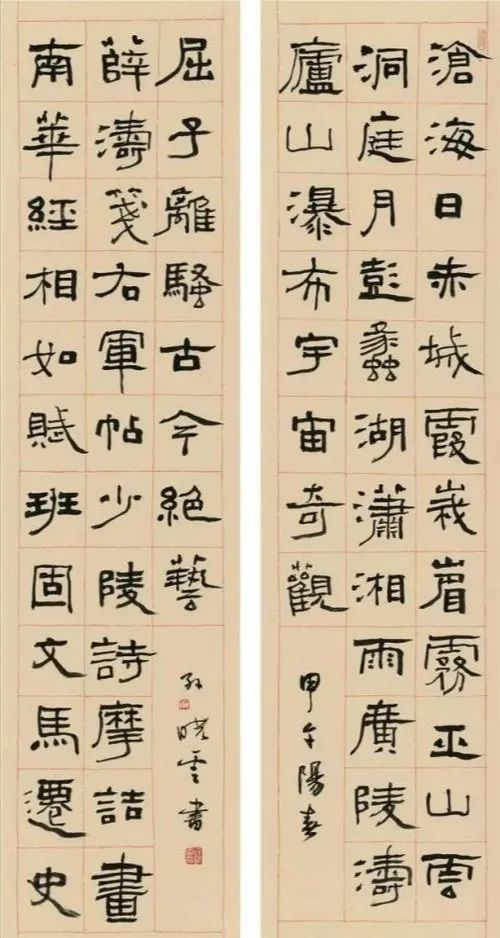 滄海日赤城霞峩眉霧巫山雲
洞庭月彭蠡湖瀟湘雨廣陵濤
廬山瀑布宇宙奇觀
甲午陽春
南華經相如賦班固文馬遷史
薛濤箋右軍帖少陵詩摩詰畫
屈子離騷古今絶藝
孙曉雲書